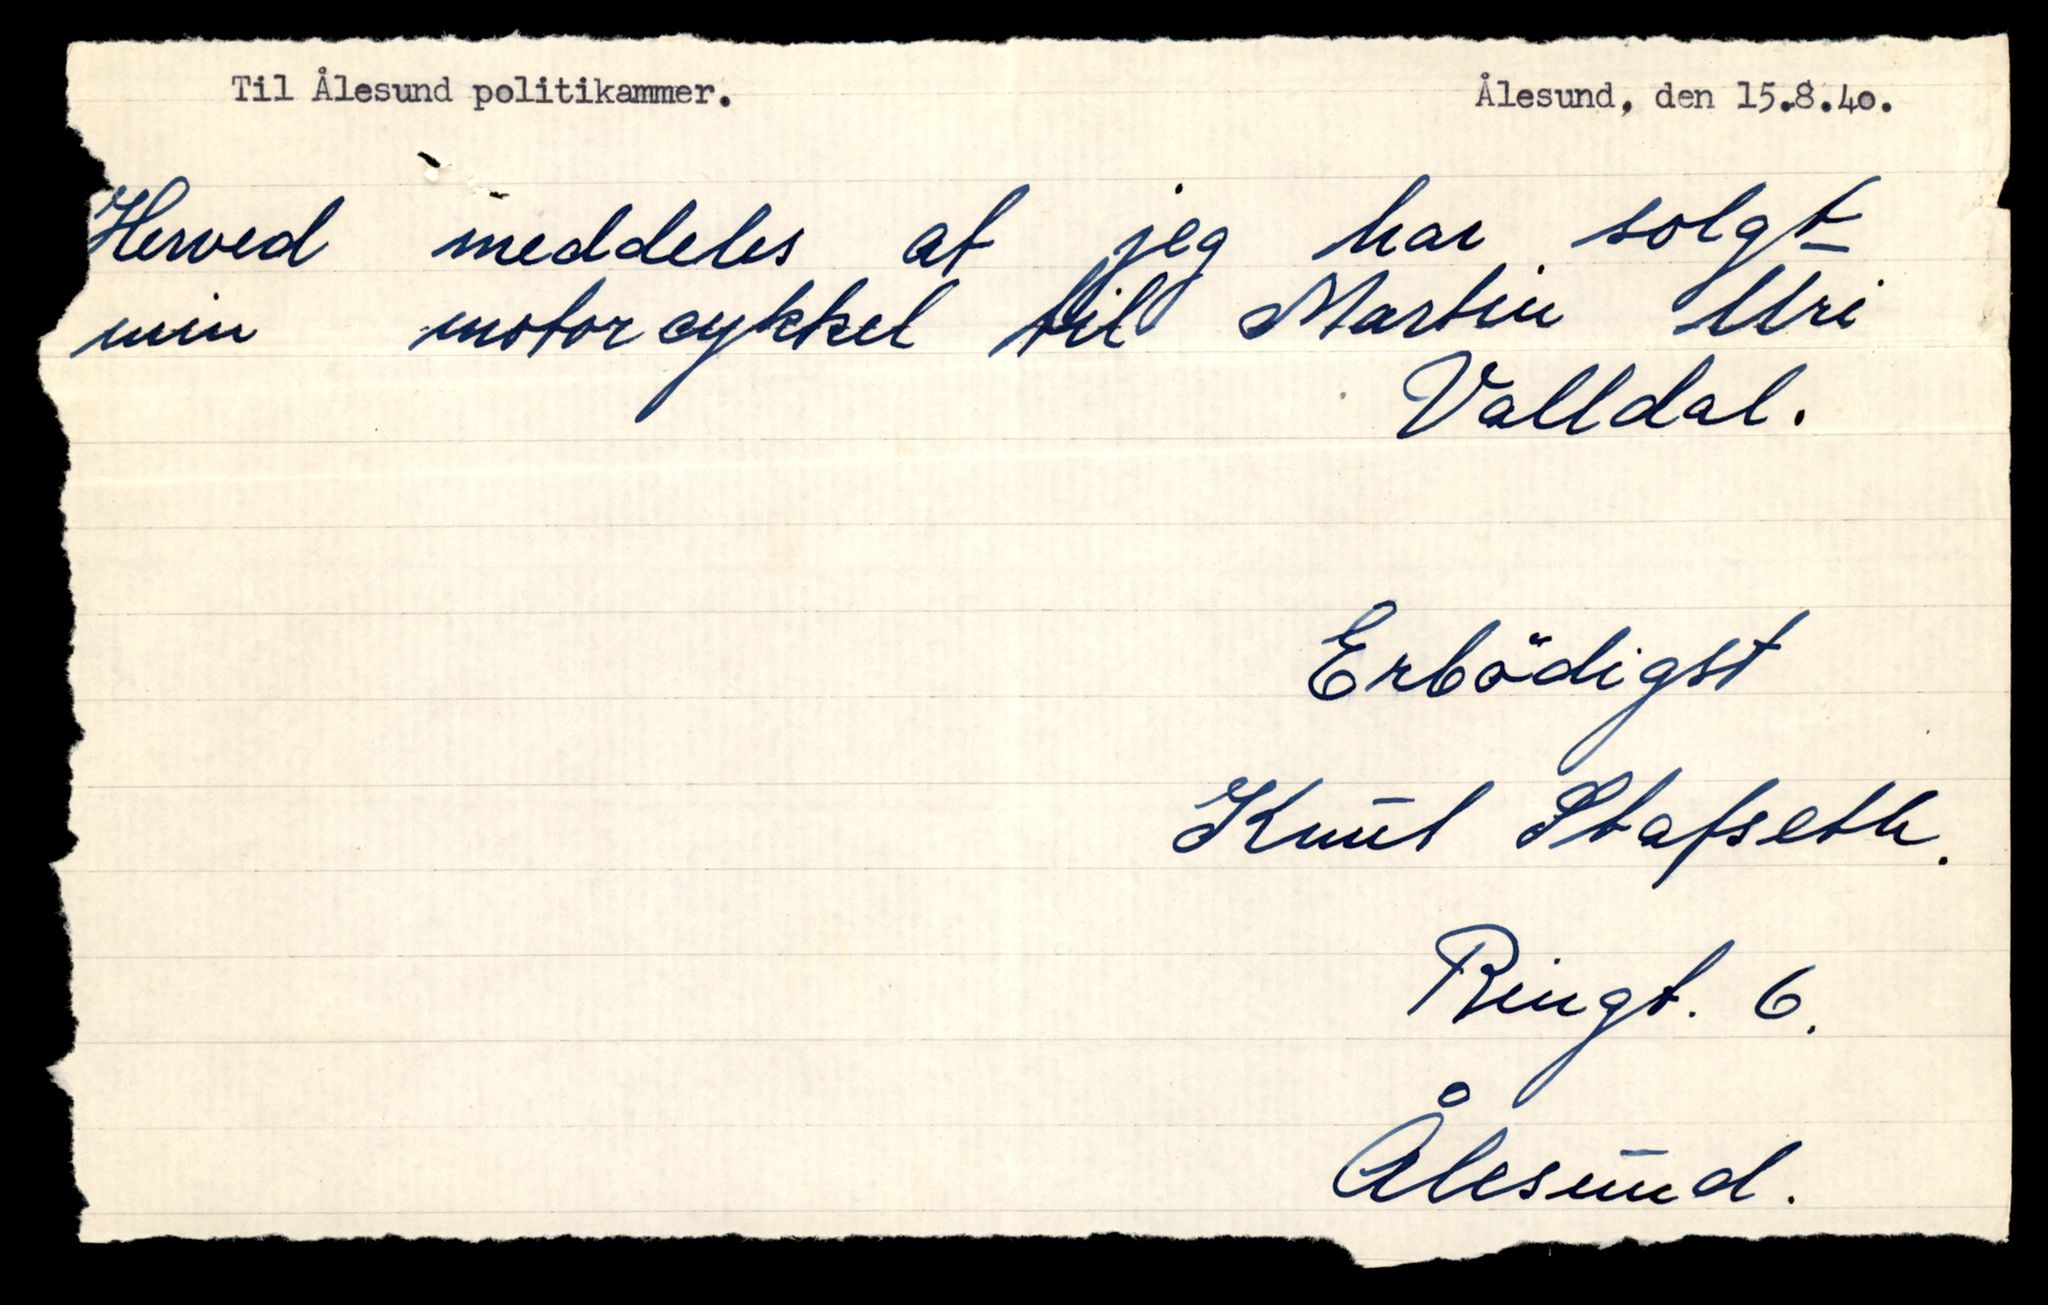 Til Ålesund politikammer. Ålesund, den 15.8.40.
Herved meddeles at jeg har solgt
min motorcykkel til Martin Uri
Valldal.
Erbödigst
Knut Stafseth.
Ringt. 6.
Ålesund.